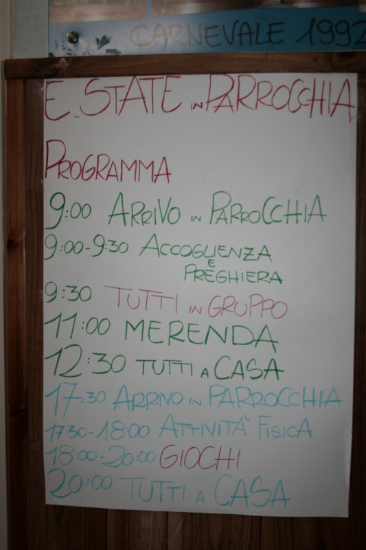 CARNEVALE 1992
E...STATE in PARROCCHIA
PROGRAMMA
9:00 ARRIVO in PARROCCHIA
9:00-9:30 ACCOGLIENZA
E
PREGHIERA
9:30 TUTTI in GRUPPO
11:00 MERENDA
12:30 TUTTI A CASA
17:30 ARRIVO in PARROCCHIA
17:30-18:00 ATTIVITÀ FISICA
18:00-20:00 GIOCHI
20:00 TUTTI A CASA